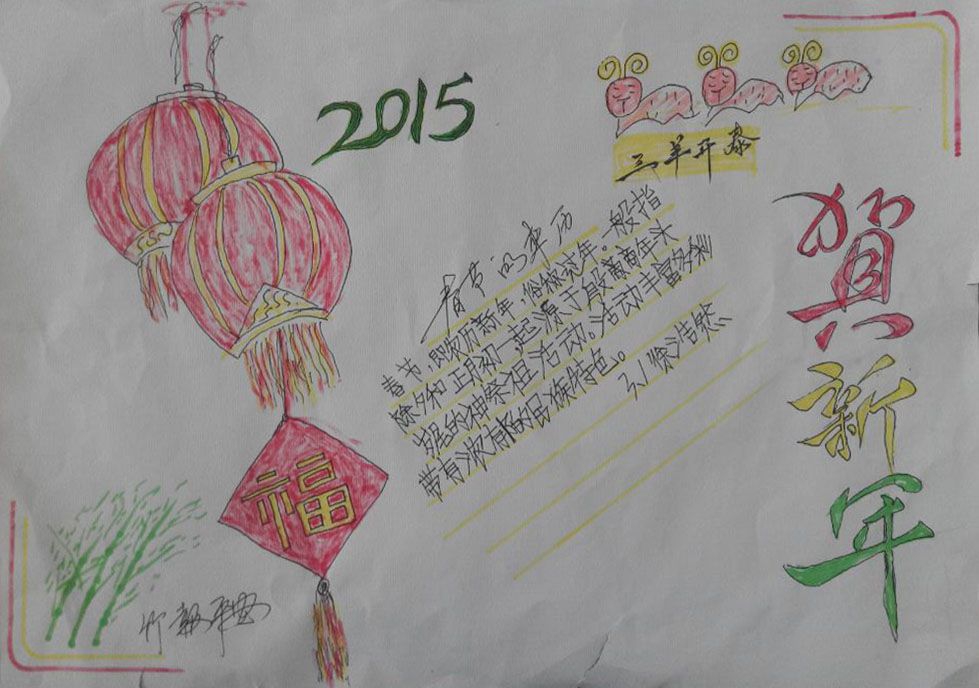 2015
三羊开泰
賀
新
年
春节的来历
春节,即农历新年,俗称过年。一般指
除夕和正月初一起源于殷商年头
岁尾的神祭祖活动。活动丰富多彩
带有浓郁的民族特色。
3、1 徐洁然
福
竹报平安